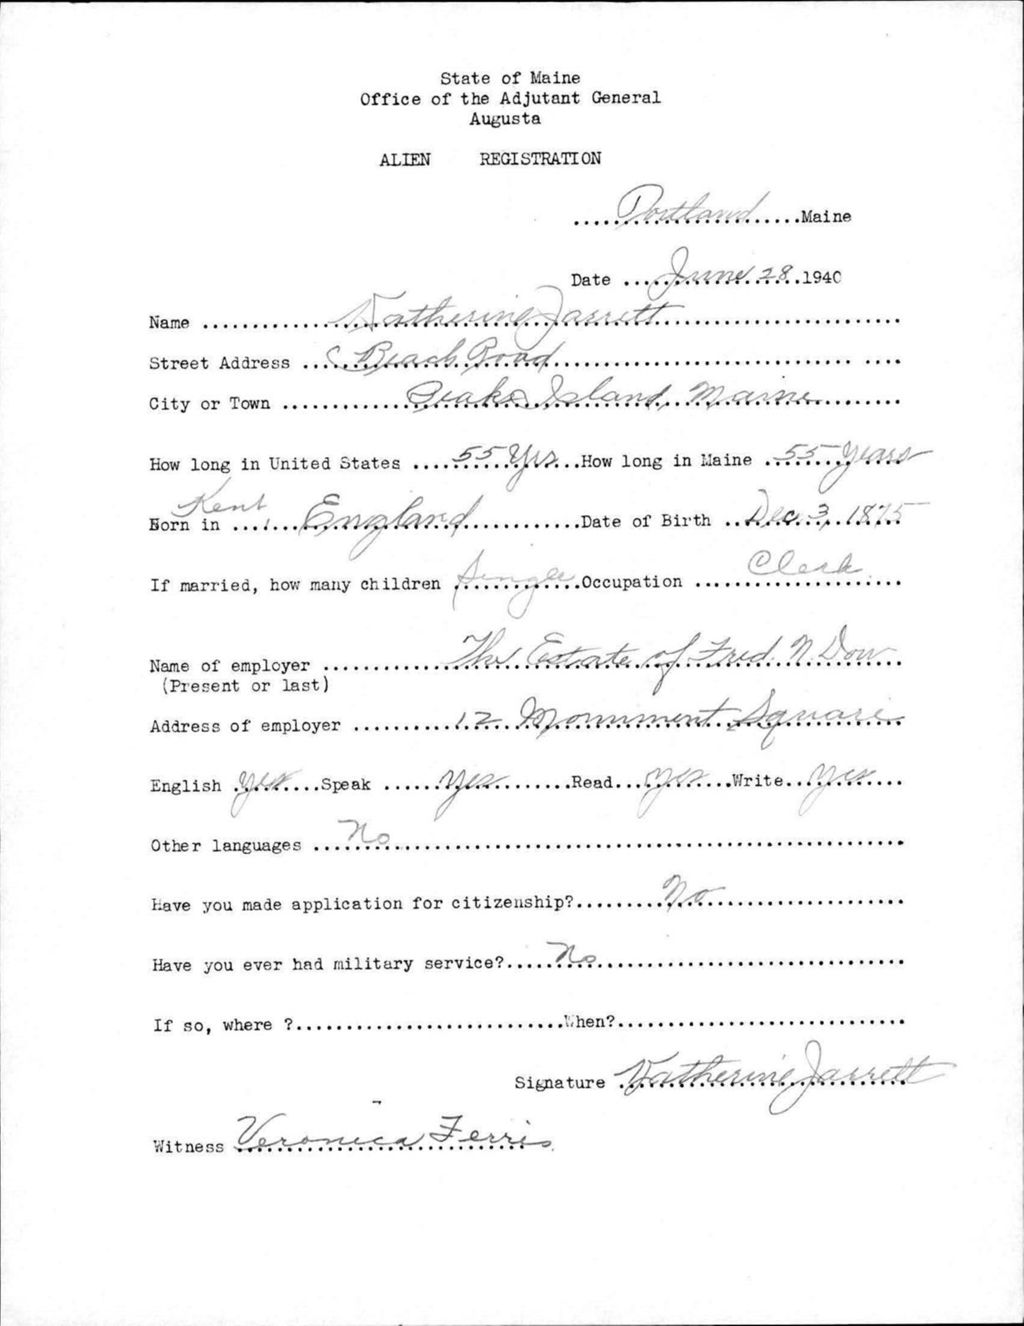 State of Maine
Office of the Adjutant General
Augusta
ALIEN REGISTRATION
Portland Maine
Date June 28, 1940
Name Katherine Jarrett
Street Address Beach Road
City or Town Peaks Island, Maine
How long in United States 55 Yrs How long in Maine 55 years
Kent
Born in England Date of Birth Dec. 3, 1875
If married, how many children Single Occupation Clerk
Name of employer The Estate of Fred. N. Dow
(Present or last)
Address of employer 12 Monument Square
English Yes Speak Yes Read Yes Write Yes
Other languages No
Have you made application for citizenship? No
Have you ever had military service? No
If so, where ? When?
Signature Katherine Jarrett
Witness Veronica Ferris